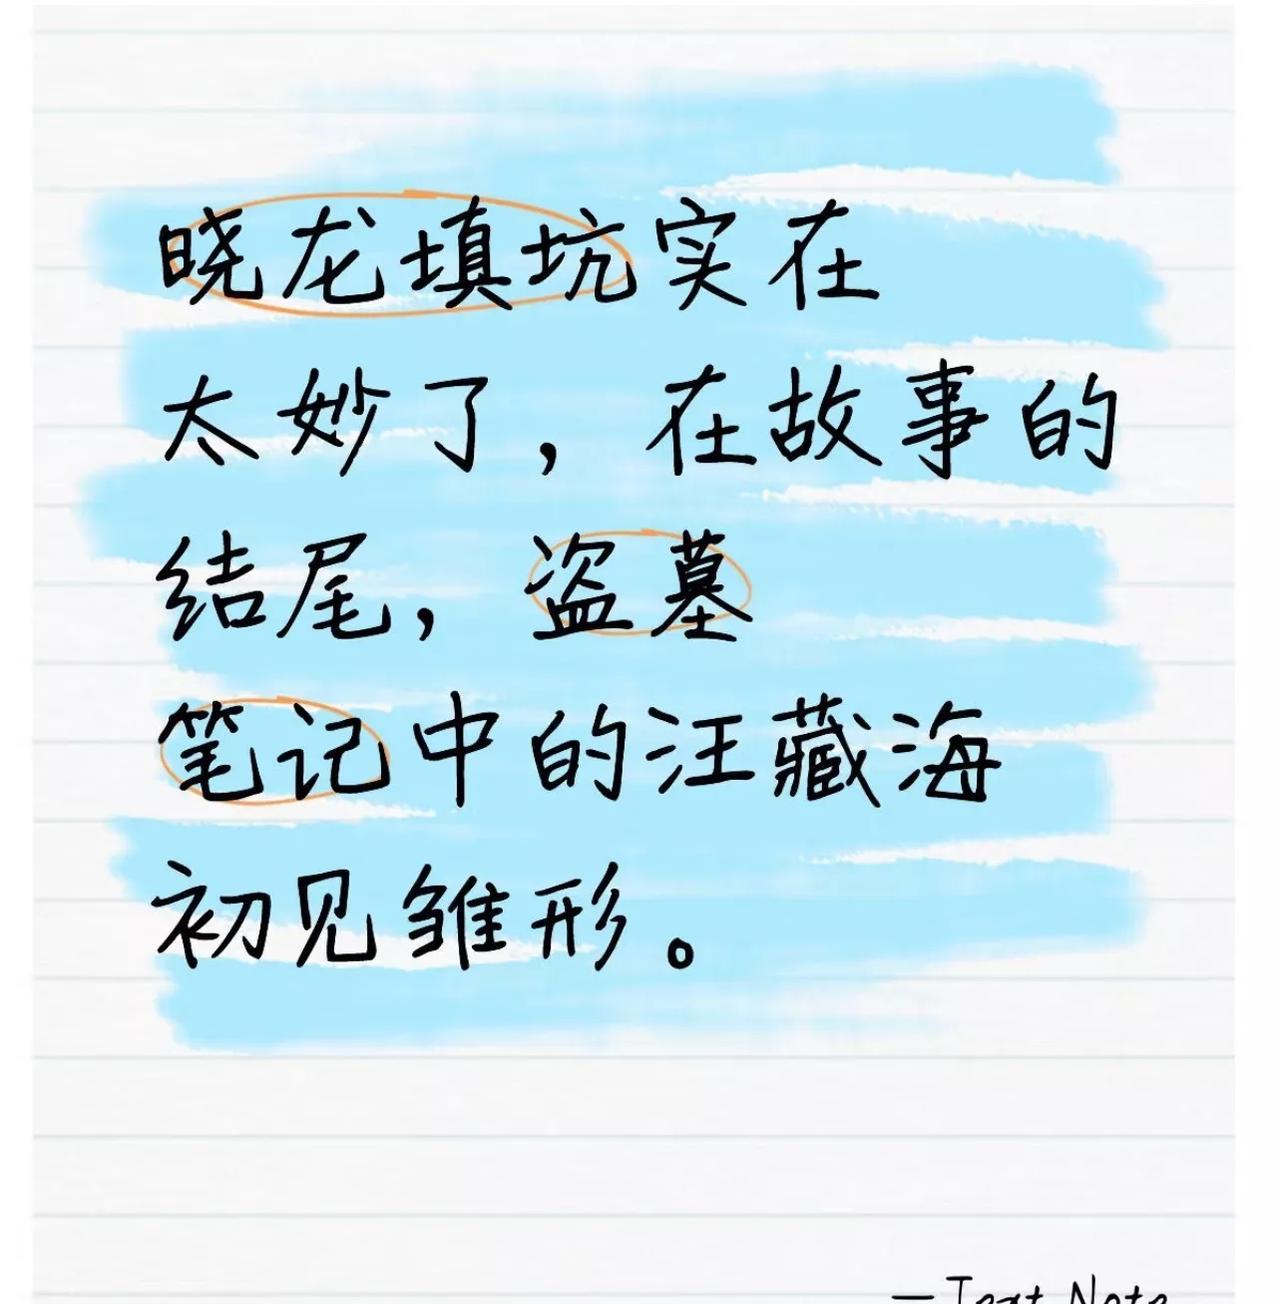 晓龙填坑实在
太妙了，在故事的
结尾，盗墓
笔记中的汪藏海
初见雏形。
— Text Note